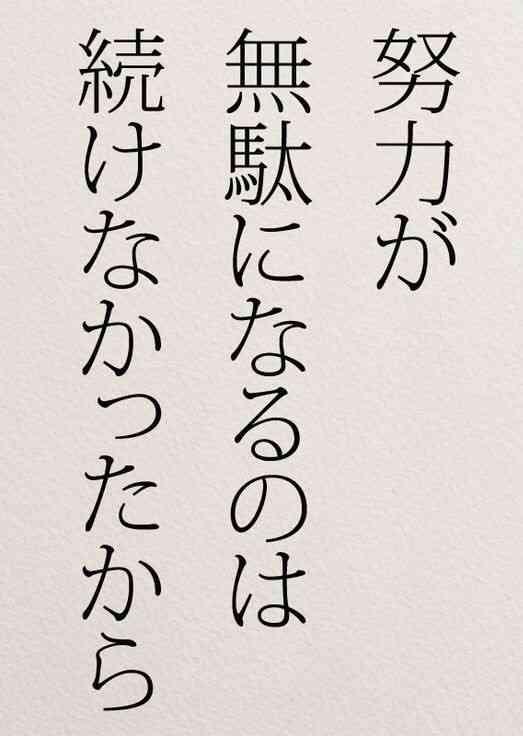 努力が
無駄になるのは
続けなかったから